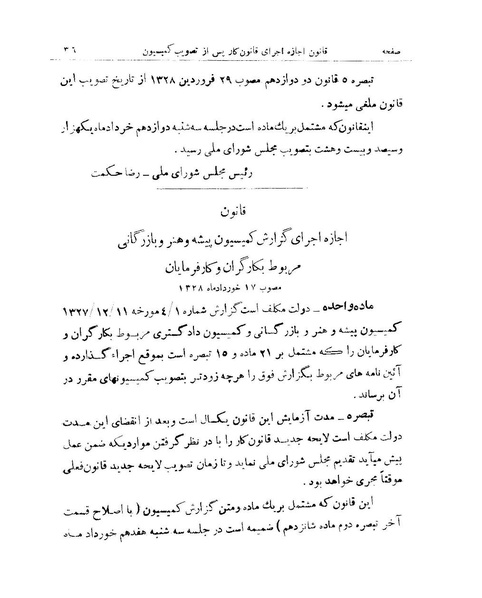 صفحه قانون اجازه اجرای قانون کار پس از تصویب کمیسیون ۳۶
تبصره ۵ قانون دو دوازدهم مصوب ۲۹ فروردین ۱۳۲۸ از تاریخ تصویب این
قانون ملغی میشود .
اینقانون که مشتمل بریك ماده است در جلسه سه‌شنبه دوازدهم خرداد ماه یکهزار
وسیصد وبیست وهشت بتصویب مجلس شورای ملی رسید .
رئیس مجلس شورای ملی ـ رضا حکمت
قانون
اجازه اجرای گزارش کمیسیون پیشه و هنر و بازرگانی
مربوط بکارگران و کارفرمایان
مصوب ۱۷ خوردادماه ۱۳۲۸
ماده واحده ـ دولت مکلف است گزارش شماره ۴/۱ مورخه ۱۳۲۷/۱۲/۱۱
کمیسیون پیشه و هنر و بازرگانی و کمیسیون دادگستری مربوط بکارگران و
کارفرمایان را که مشتمل بر ۲۱ ماده و ۱۵ تبصره است بموقع اجراء گذارده و
آئین نامه های مربوط بگزارش فوق را هرچه زودتر بتصویب کمیسیونهای مقرر در
آن برساند .
تبصره ـ مدت آزمایش این قانون یکسال است و بعد از انقضای این مدت
دولت مکلف است لایحه جدید قانون کار را با در نظر گرفتن مواردیکه ضمن عمل
پیش میآید تقدیم مجلس شورای ملی نماید و تا زمان تصویب لایحه جدید قانون فعلی
موقتاً مجری خواهد بود .
این قانون که مشتمل بریك ماده و متن گزارش کمیسیون ( با اصلاح قسمت
آخر تبصره دوم ماده شانزدهم ) ضمیمه است در جلسه سه شنبه هفدهم خورداد ماه